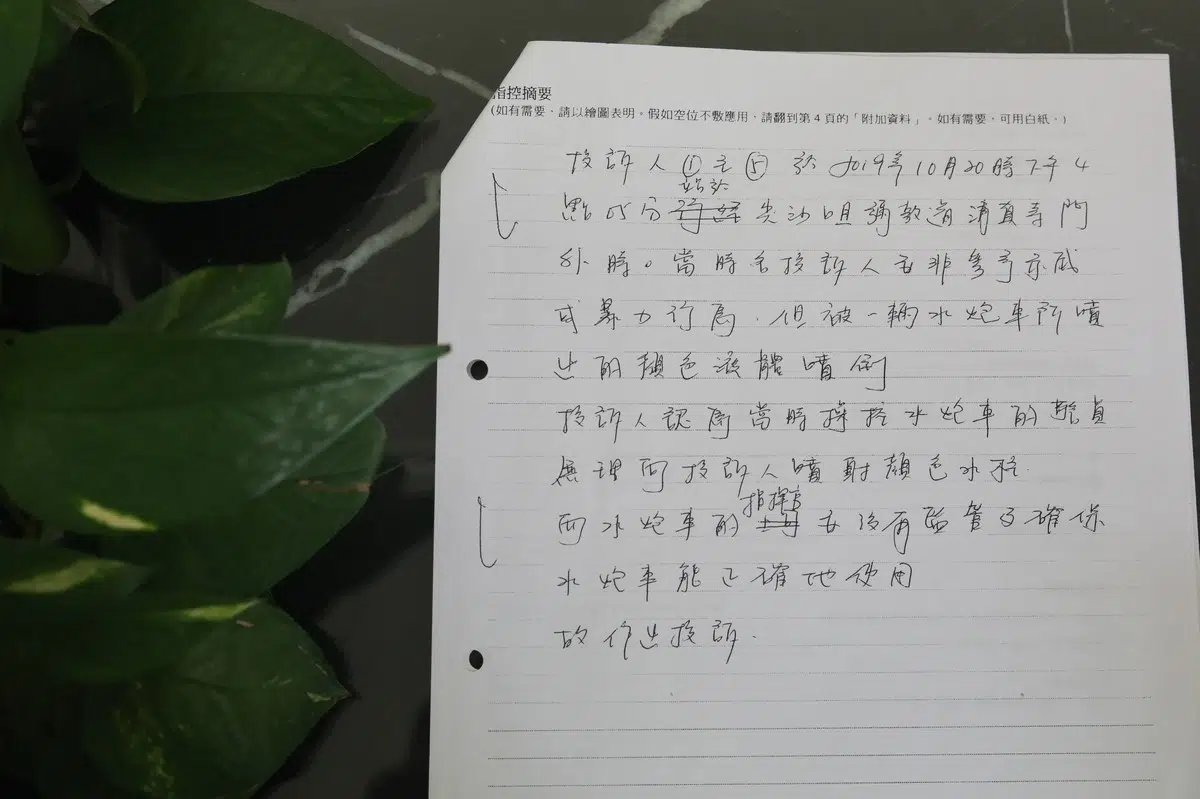 指控摘要
(如有需要、請以繪圖表明。假如空位不敷應用、請翻到第 4 頁的「附加資料」。如有需要、可用白紙。)
投訴人①至⑤於2019年10月20時下午4
站於
點05分尖沙咀彌敦道清真寺門
外時。當時各投訴人並非參予示威
或暴力行為.但被一輛水炮車所噴
出的顏色液體噴倒
投訴人認為當時操控水炮車的警員
無理向投訴人噴射顏色水柱.
指揮官
而水炮車的並沒有監管及確保
水炮車能正確地使用
故作出投訴.